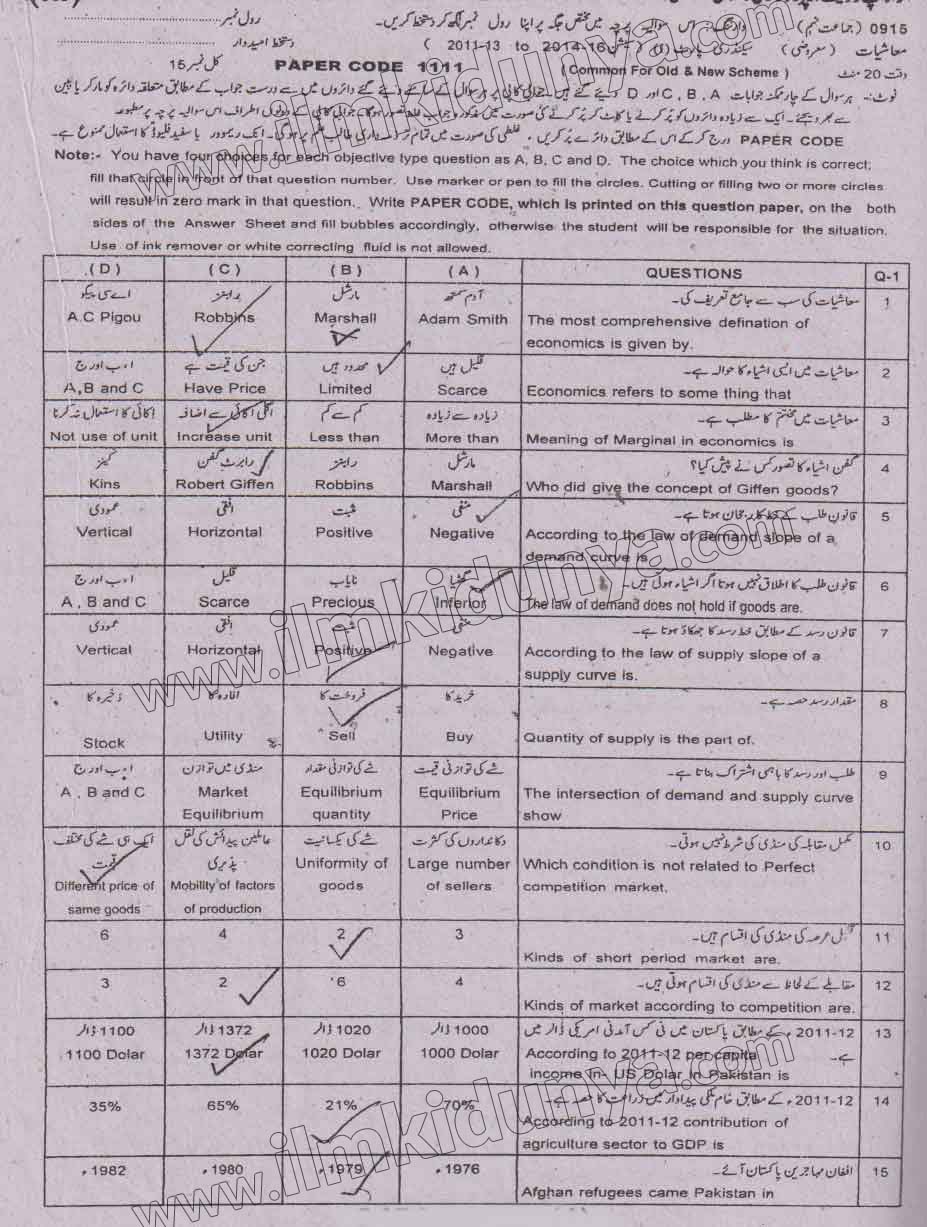 0915 (جماعت نہم) وارننگ:۔ اس سوالیہ پرچہ میں مختص جگہ پر اپنا رول نمبر لکھ کر دستخط کریں۔ رول نمبر
معاشیات (معروضی) سیکنڈری پارٹ (I) سیشن (2011-13 to 2014-16) دستخط امیدوار
وقت 20 منٹ (Common For Old & New Scheme) PAPER CODE 1111 کل نمبر 15
نوٹ:۔ ہر سوال کے چار ممکنہ جوابات A ، B ، C اور D دیئے گئے ہیں۔ جوابی کاپی پر ہر سوال کے سامنے دیئے گئے دائروں میں سے درست جواب کے مطابق متعلقہ دائرہ کو مارکر یا پین
سے بھر دیجئے۔ ایک سے زیادہ دائروں کو پُر کرنے یا کاٹ کر پُر کرنے کی صورت میں مذکورہ جواب غلط تصور ہوگا۔ جوابی کاپی کے دونوں اطراف اس سوالیہ پرچہ پر مطبوعہ
PAPER CODE درج کر کے اس کے مطابق دائرے پُر کریں، غلطی کی صورت میں تمام تر ذمہ داری طالب علم پر ہوگی۔ انک ریموور یا سفید فلیوڈ کا استعمال ممنوع ہے۔
Note:- You have four choices for each objective type question as A, B, C and D. The choice which you think is correct;
fill that circle in front of that question number. Use marker or pen to fill the circles. Cutting or filling two or more circles
will result in zero mark in that question. Write PAPER CODE, which is printed on this question paper, on the both
sides of the Answer Sheet and fill bubbles accordingly, otherwise the student will be responsible for the situation.
Use of ink remover or white correcting fluid is not allowed.
( D ) ( C ) ( B ) ( A ) QUESTIONS Q-1
اے سی پیگو رابنز مارشل آدم سمتھ معاشیات کی سب سے جامع تعریف کی۔ 1
A.C Pigou Robbins Marshall Adam Smith The most comprehensive defination of
economics is given by.
ا، ب اور ج جن کی قیمت ہے محدود ہیں قلیل ہیں معاشیات میں ایسی اشیاء کا حوالہ ہے۔ 2
A,B and C Have Price Limited Scarce Economics refers to some thing that
اکائی کا استعمال نہ کرنا اگلی اکائی سے اضافہ کم سے کم زیادہ سے زیادہ معاشیات میں مختتم کا مطلب ہے۔ 3
Not use of unit Increase unit Less than More than Meaning of Marginal in economics is
کینز رابرٹ گفن رابنز مارشل گفن اشیاء کا تصور کس نے پیش کیا؟ 4
Kins Robert Giffen Robbins Marshall Who did give the concept of Giffen goods?
عمودی افقی مثبت منفی قانون طلب کے خط کا رجحان ہوتا ہے۔ 5
Vertical Horizontal Positive Negative According to the law of demand slope of a
demand curve is
ا، ب اور ج قلیل نایاب گھٹیا قانون طلب کا اطلاق نہیں ہوتا اگر اشیاء ہوتی ہیں۔ 6
A , B and C Scarce Precious Inferior The law of demand does not hold if goods are.
عمودی افقی مثبت منفی قانون رسد کے مطابق خط رسد کا جھکاؤ ہوتا ہے۔ 7
Vertical Horizontal Positive Negative According to the law of supply slope of a
supply curve is.
ذخیرہ کا افادہ کا فروخت کا خرید کا مقدار رسد حصہ ہے۔ 8
Stock Utility Sell Buy Quantity of supply is the part of.
ا، ب اور ج منڈی میں توازن شے کی توازنی مقدار شے کی توازنی قیمت طلب اور رسد کا باہمی اشتراک بناتا ہے۔ 9
A , B and C Market Equilibrium Equilibrium The intersection of demand and supply curve
Equilibrium quantity Price show
ایک ہی شے کی مختلف عاملین پیدائش کی نقل شے کی یکسانیت دکانداروں کی کثرت مکمل مقابلہ کی منڈی کی شرط نہیں ہوتی۔ 10
قیمت پذیری Uniformity of Large number Which condition is not related to Perfect
Different price of Mobility of factors goods of sellers competition market.
same goods of production
6 4 2 3 قلیل عرصہ کی منڈی کی اقسام ہیں۔ 11
Kinds of short period market are.
3 2 6 4 مقابلے کے لحاظ سے منڈی کی اقسام ہوتی ہیں۔ 12
Kinds of market according to competition are.
1100 ڈالر 1372 ڈالر 1020 ڈالر 1000 ڈالر 2011-12ء کے مطابق پاکستان میں فی کس آمدنی امریکی ڈالر میں 13
ہے۔
1100 Dolar 1372 Dolar 1020 Dolar 1000 Dolar According to 2011-12 per capita
income in- US Dolar in Pakistan is
35% 65% 21% 70% 2011-12ء کے مطابق خام ملکی پیداوار میں زراعت کا حصہ ہے۔ 14
According to 2011-12 contribution of
agriculture sector to GDP is
1982ء 1980ء 1979ء 1976ء افغان مہاجرین پاکستان آئے۔ 15
Afghan refugees came Pakistan in
www.ilmkidunya.com
www.ilmkidunya.com
www.ilmkidunya.com